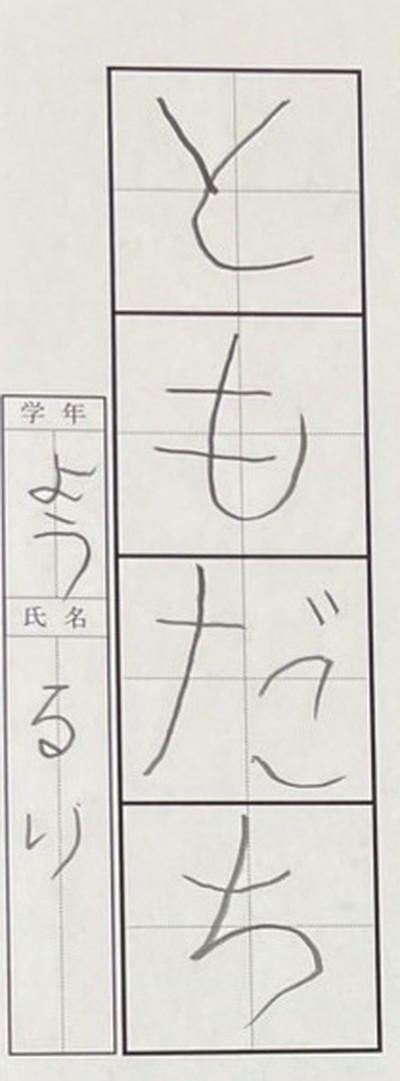 ともだち
学年
よう
氏名
るり